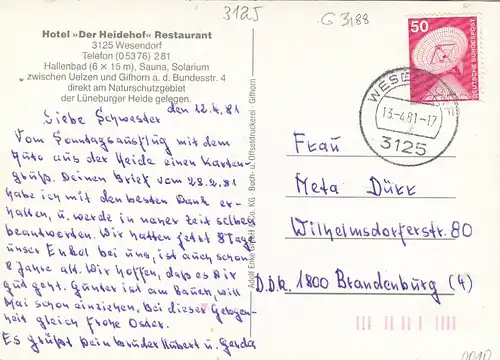 3125
G 3188
Hotel »Der Heidehof« Restaurant
3125 Wesendorf
Telefon (05376) 281
Hallenbad (6 × 15 m), Sauna, Solarium
zwischen Uelzen und Gifhorn a. d. Bundesstr. 4
direkt am Naturschutzgebiet
der Lüneburger Heide gelegen.
50
DEUTSCHE BUNDESPOST
13.-4.81-17
3125
den 12.4.81
Liebe Schwester
Vom Sonntagsausflug mit dem
Auto aus der Heide einen Karten-
gruß. Deinen Brief vom 28.2.81
habe ich mit den besten Dank er-
halten, u. werde in naher Zeit selben
beantworten. Wir hatten jetzt 8 Tage
unser Enkel bei uns, ist auch schon
8 Jahre alt. Wir hoffen, daß es Dir
gut geht. Günter ist am Bauen, will
Mai schon einziehen. Bei dieser Gelegen-
heit gleich Frohe Ostern.
Es grüßt Dein Bruder Hubert u. Gerda
Buch- u. Offsetdruckerei - Gifhorn
Frau
Meta Dürr
Wilhelmsdorferstr. 80
D.D.R. 1800 Brandenburg (4)
0010